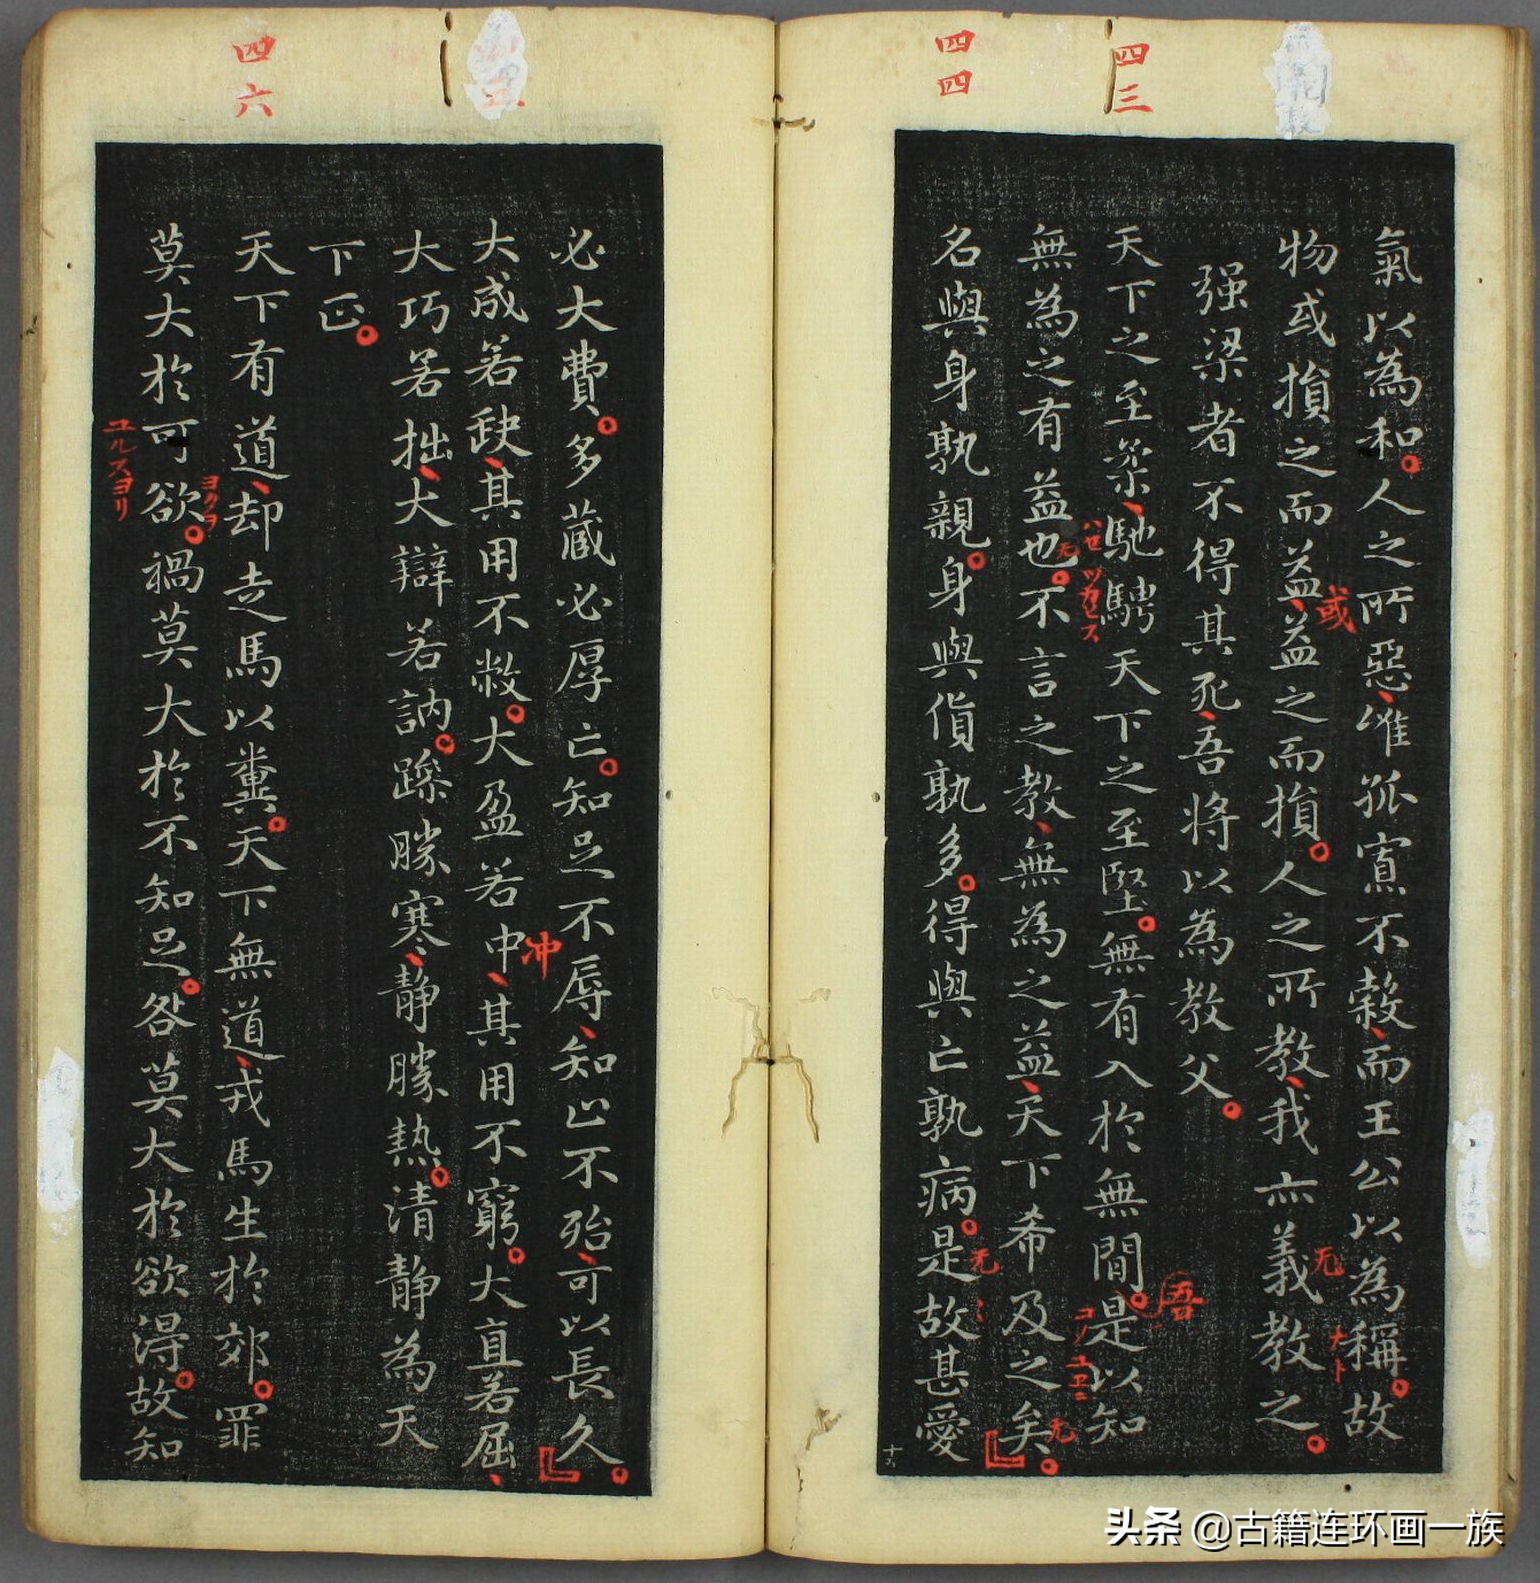 四三
四四
氣以為和人之所惡唯孤寡不穀而王公以為稱故
物或損之而益益之而損人之所教我亦義教之
或
无
ナト
强梁者不得其死吾将以為教父
天下之至柔馳騁天下之至堅無有入於無間是以知
吾
無為之有益也不言之教無為之益天下希及之矣
无
无
名與身孰親身與貨孰多得與亡孰病是故甚愛
无
十六
四六
必大費多藏必厚亡知足不辱知止不殆可以長久
大成若缺其用不敝大盈若中其用不窮大直若屈
冲
大巧若拙大辯若訥躁勝寒静勝熱清静為天
下正
天下有道却走馬以糞天下無道戎馬生於郊罪
莫大於可欲禍莫大於不知足咎莫大於欲得故知
ヨクヲ
ユルスヨリ
头条 @古籍连环画一族